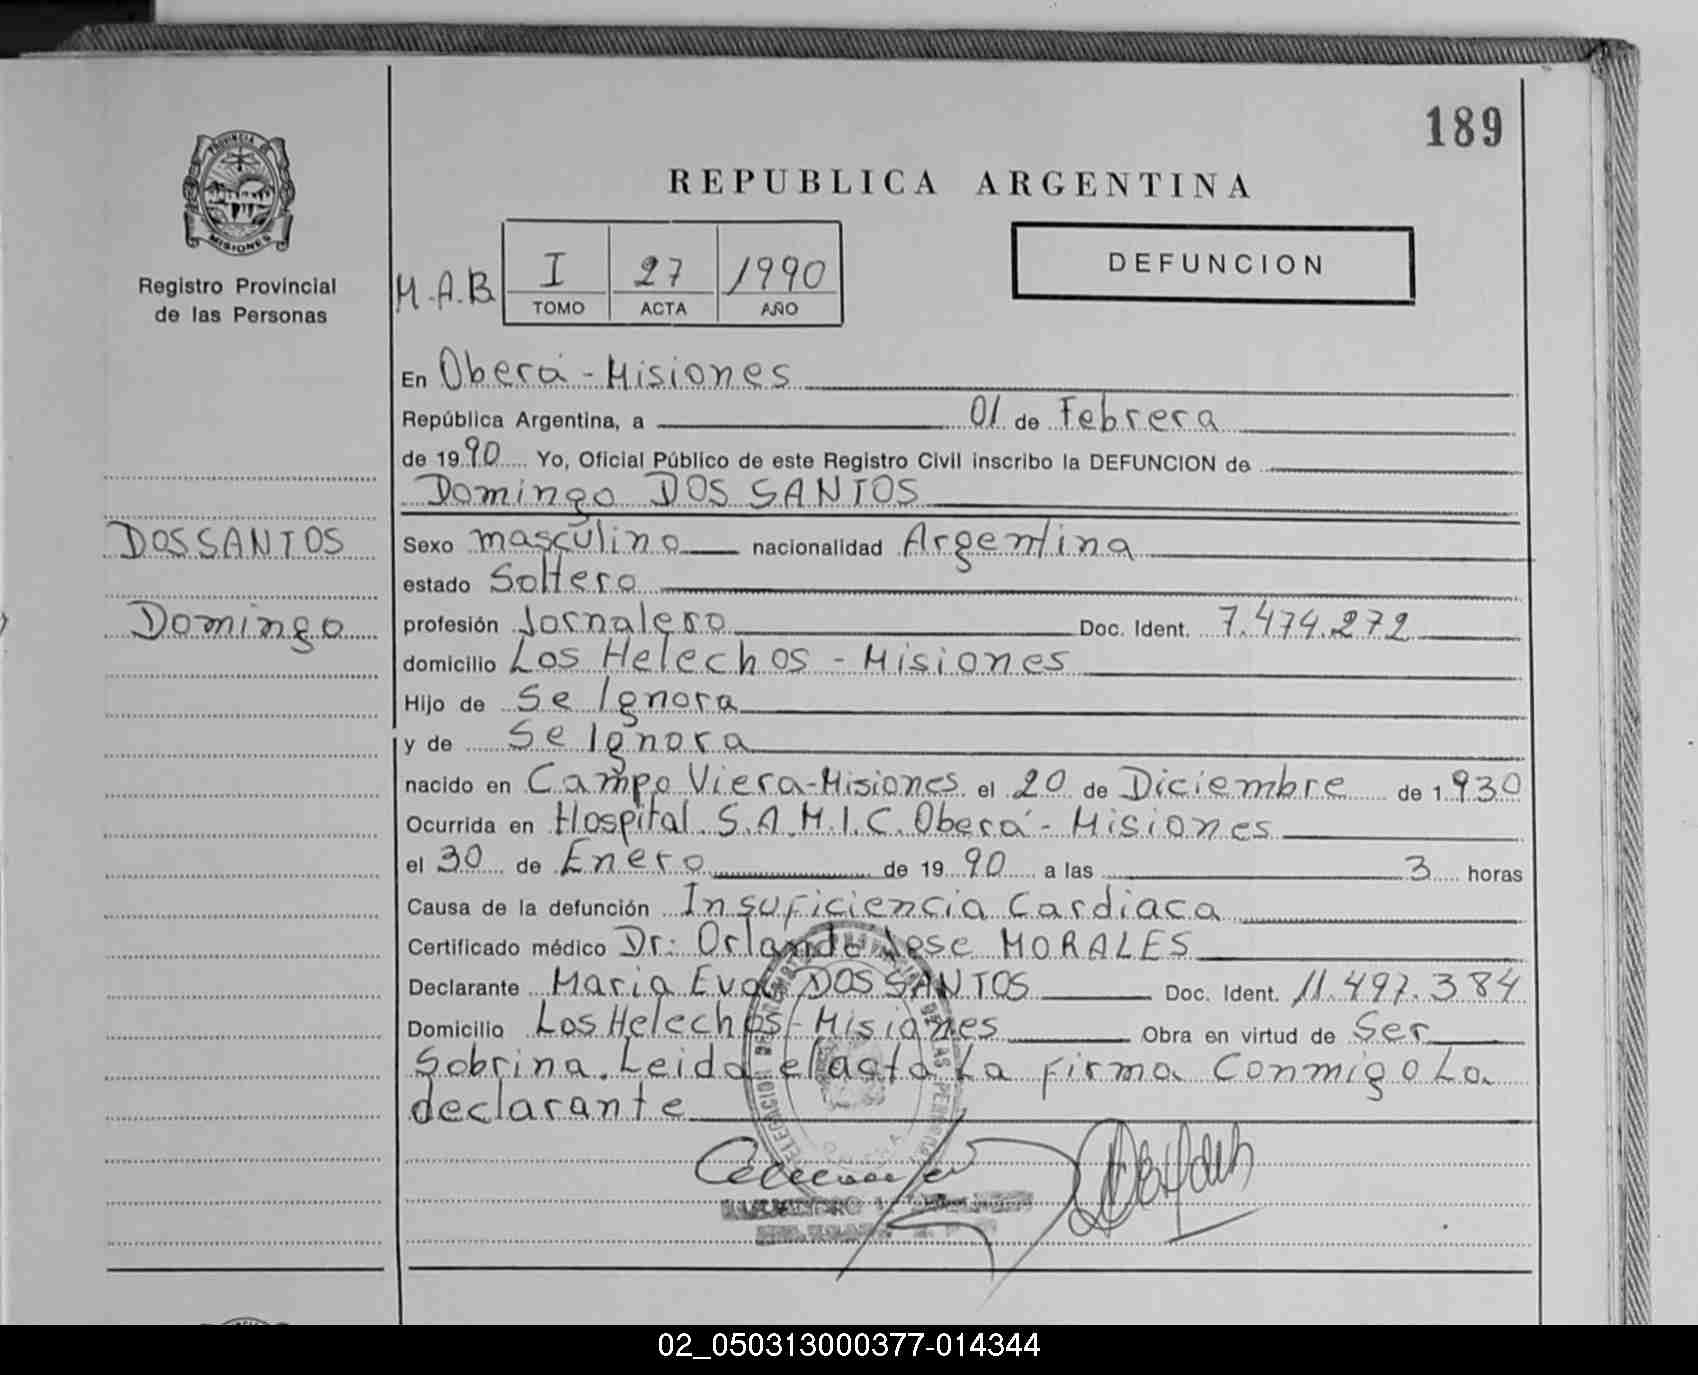 189
PROVINCIA DE
MISIONES
Registro Provincial
de las Personas
REPUBLICA ARGENTINA
M.A.B
I 27 1990
TOMO ACTA AÑO
DEFUNCION
En Oberá - Misiones
República Argentina, a 01 de Febrero
de 1990 Yo, Oficial Público de este Registro Civil inscribo la DEFUNCION de
Domingo DOS SANTOS
DOS SANTOS
Domingo
Sexo masculino nacionalidad Argentina
estado Soltero
profesión Jornalero Doc. Ident. 7.474.272
domicilio Los Helechos - Misiones
Hijo de Se Ignora
y de Se Ignora
nacido en Campo Viera-Misiones el 20 de Diciembre de 1.930
Ocurrida en Hospital S.A.M.I.C. Oberá - Misiones
el 30 de Enero de 1990 a las 3 horas
Causa de la defunción Insuficiencia Cardiaca
Certificado médico Dr: Orlando Jose MORALES
Declarante Maria Eva DOS SANTOS Doc. Ident. 11.497.384
Domicilio Los Helechos - Misiones Obra en virtud de Ser
Sobrina. Leida el acta La firma Conmigo La
declarante
02_050313000377-014344